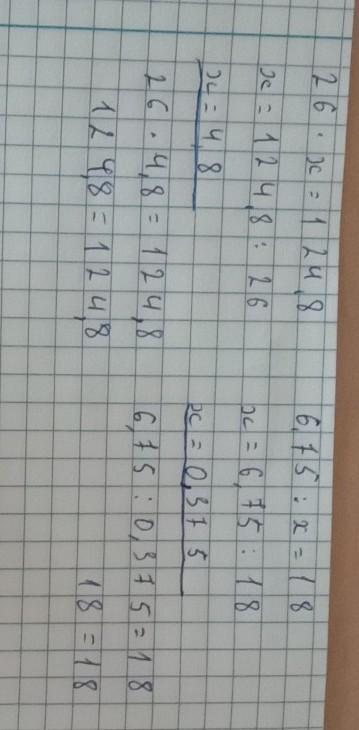 26 · x = 124,8
x = 124,8 : 26
x = 4,8
26 · 4,8 = 124,8
124,8 = 124,8
6,75 : x = 18
x = 6,75 : 18
x = 0,375
6,75 : 0,375 = 18
18 = 18